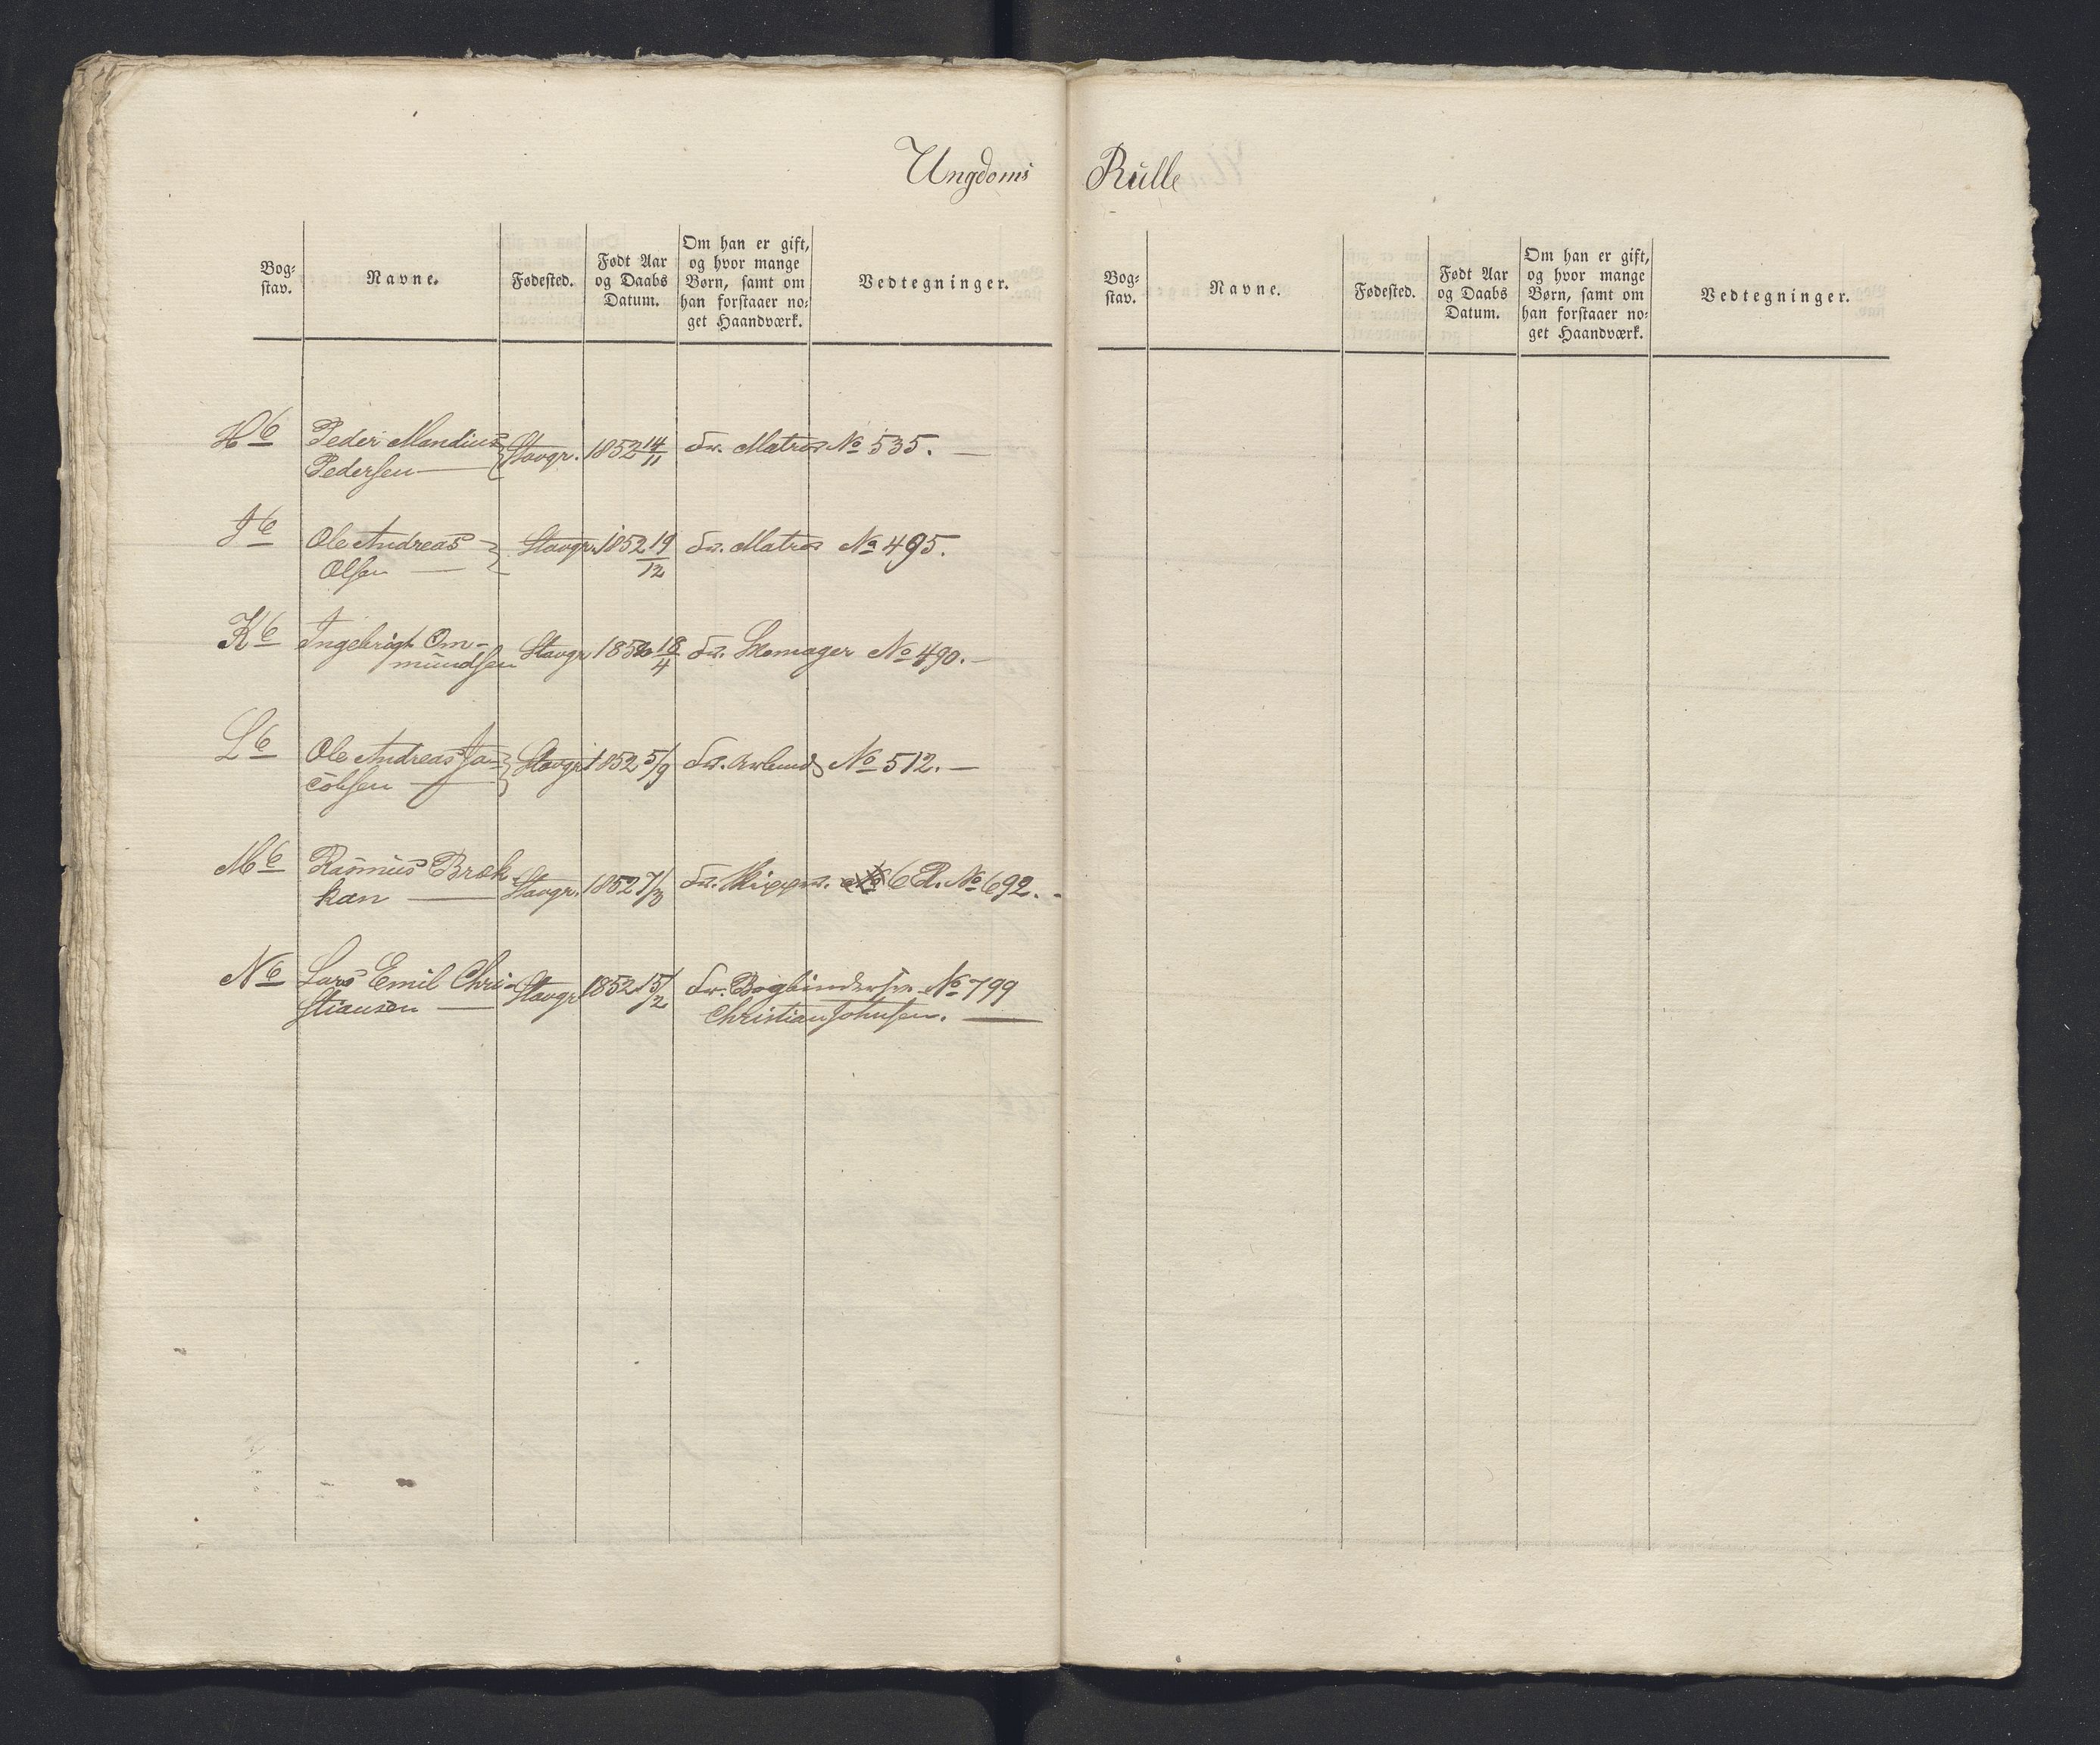 Ungdoms Rulle
Bog-
stav.
Navne.
Fødested.
Født Aar
og Daabs
Datum.
Om han er gift,
og hvor mange
Børn, samt om
han forstaaer no-
get Haandværk.
Vedtegninger.
H6 Peder Mandius Stavgr. 1852 14/11 Matros No 535. —
Pedersen —
J6 Ole Andreas Stavgr. 1852 19/12 Matros No 495.
Olsen —
K6 Ingebrigt Om- Stavgr 1852 18/4 Skomager No 490. —
mundsen
L6 Ole Andreas Ja- Stavgr 1852 5/9 No 512. —
cobsen —
M6 Rasmus Brek- Stavgr. 1852 7/3 6 R. No 692. -
kan —
N6 Lars Emil Chri- Stavgr 1852 15/2 Bogbindersv. No 799
stiansen — Christian Johnsen. —
Bog-
stav.
Navne.
Fødested.
Født Aar
og Daabs
Datum.
Om han er gift,
og hvor mange
Børn, samt om
han forstaaer no-
get Haandværk.
Vedtegninger.